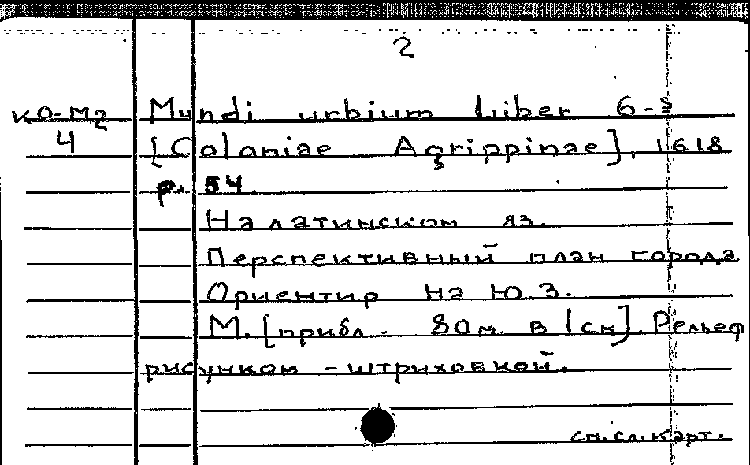 2
КО-М2 Mundi urbium liber 6-s
4 [Coloniae Agrippinae], 1618
p. 54.
На латинском яз.
Перспективный план города
Ориентир на Ю.З.
М. [прибл. 80м в 1см]. Рельеф
рисунком - штриховкой.
см. сл. карт.